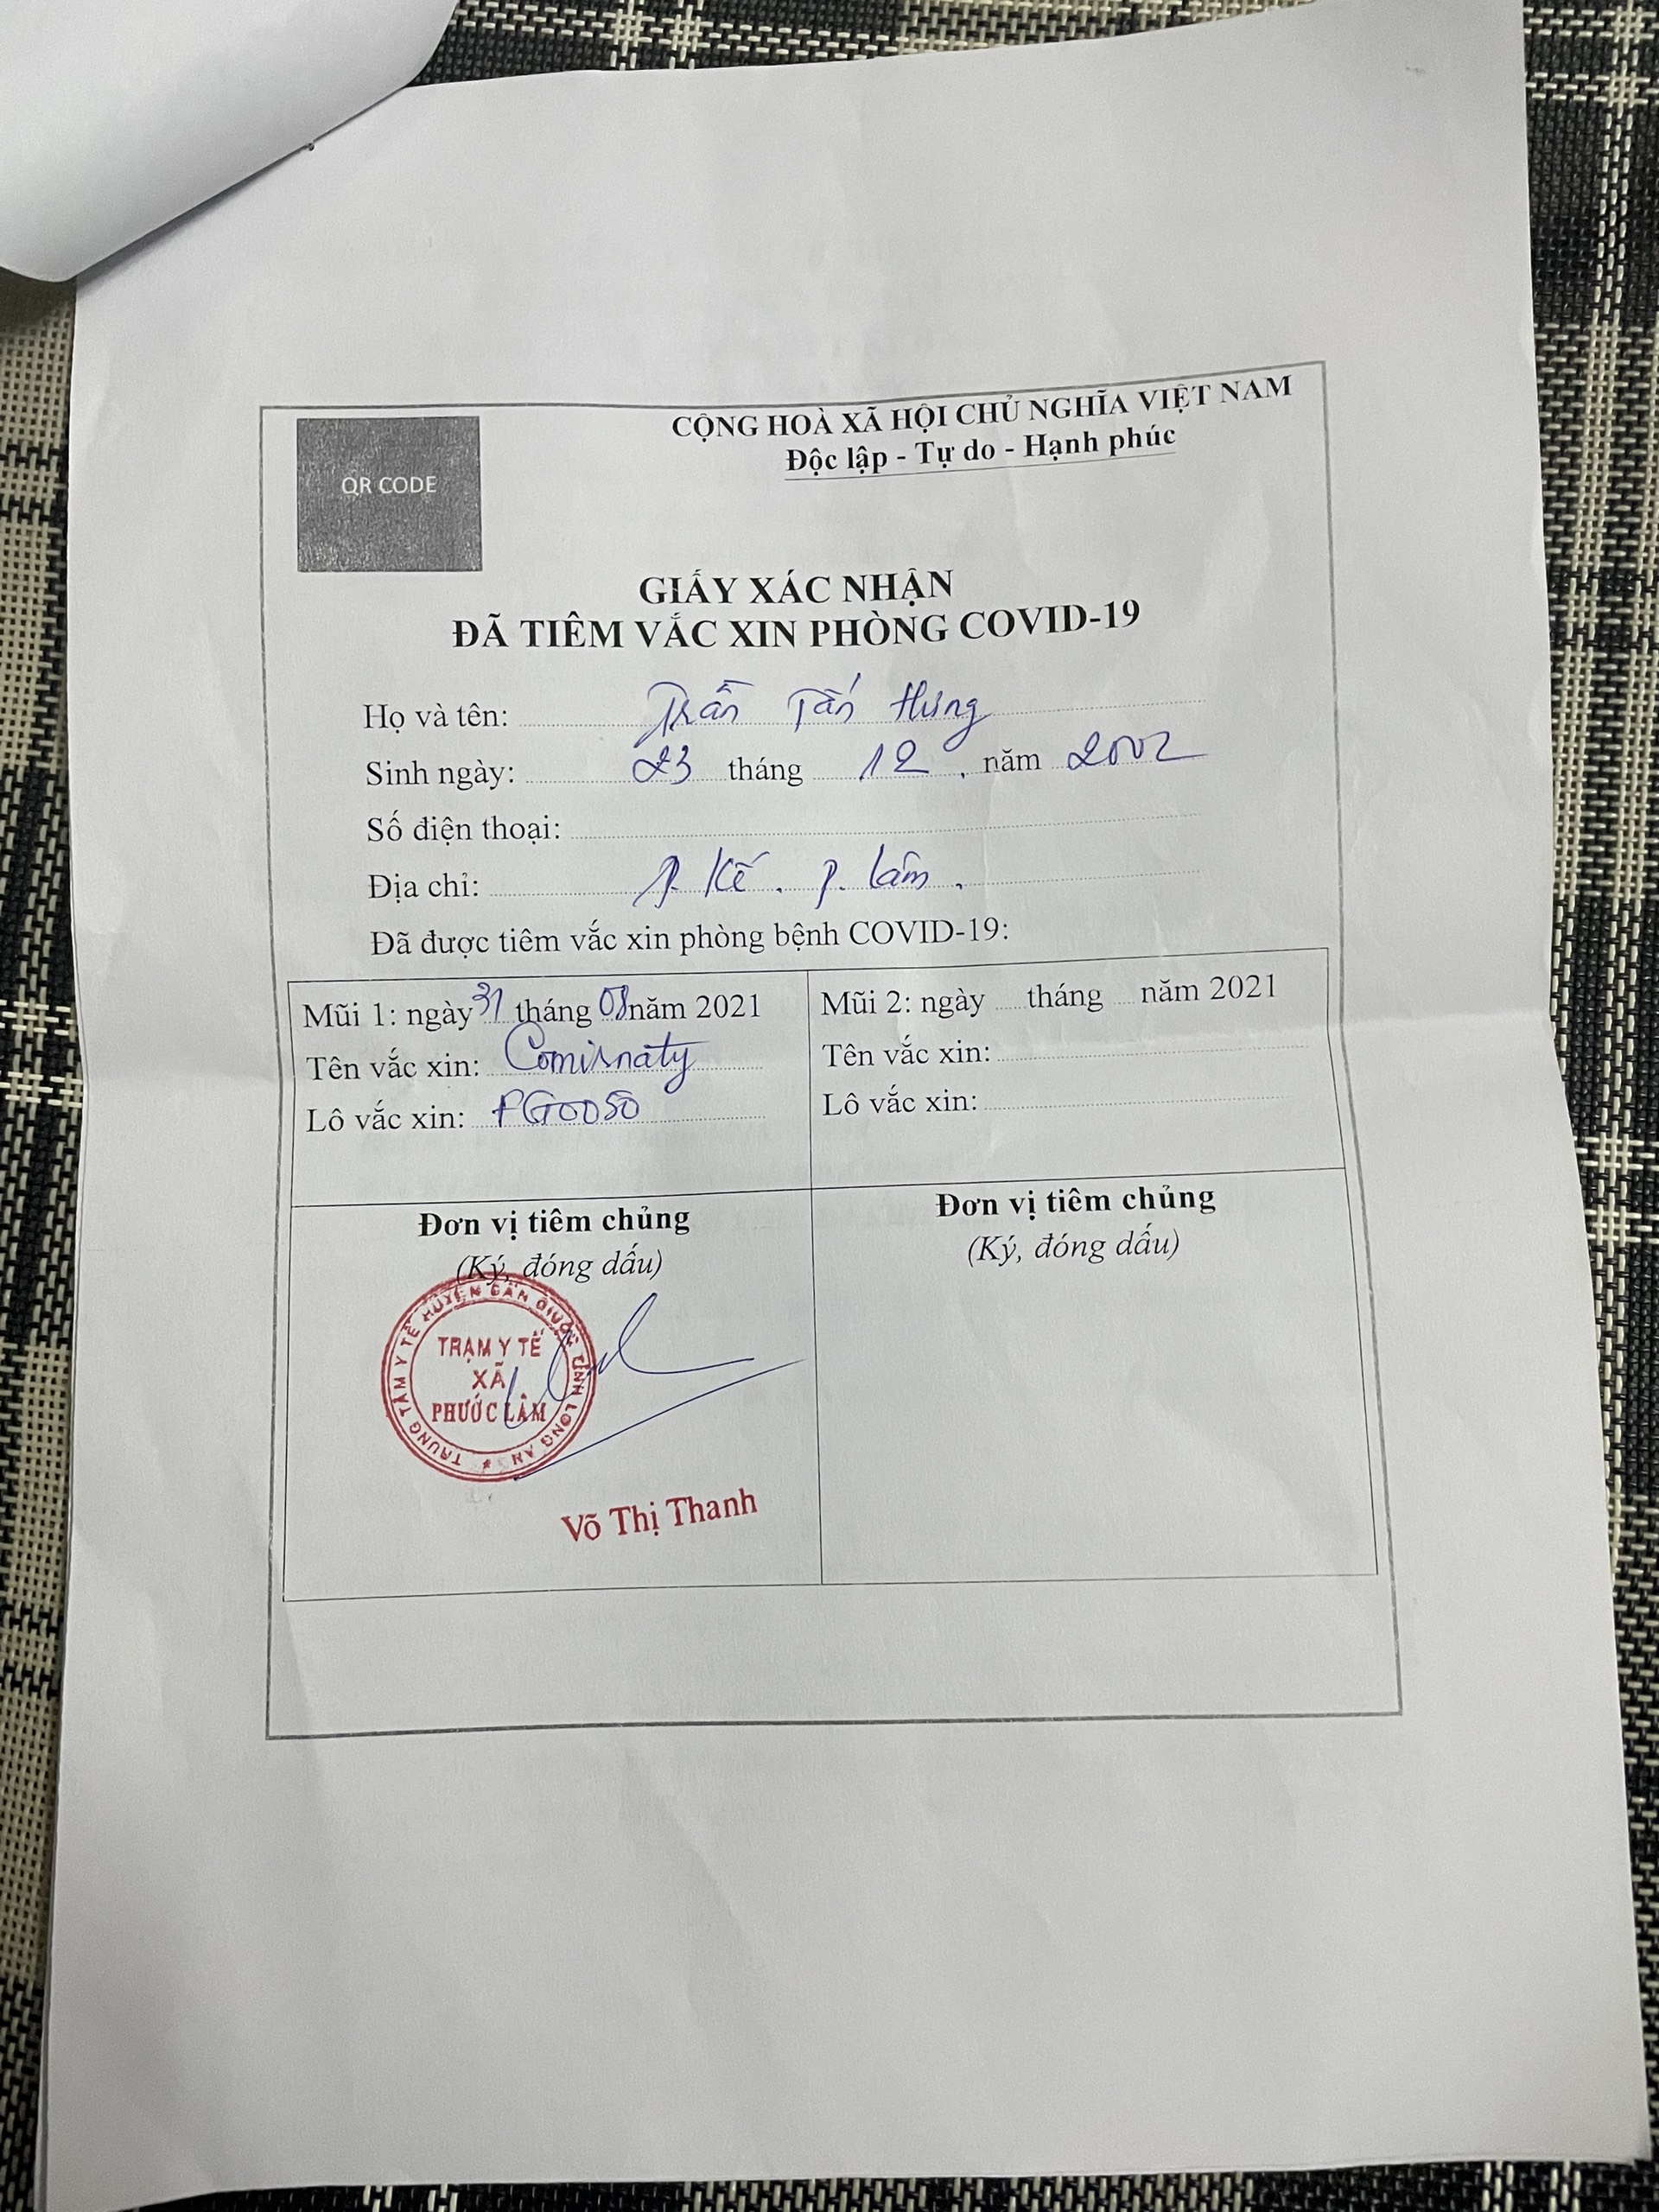 CỘNG HOÀ XÃ HỘI CHỦ NGHĨA VIỆT NAM
Độc lập - Tự do - Hạnh phúc
QR CODE
GIẤY XÁC NHẬN
ĐÃ TIÊM VẮC XIN PHÒNG COVID-19
Họ và tên: Trần Tấn Hưng
Sinh ngày: 23 tháng 12 năm 2002
Số điện thoại:
Địa chỉ: P. Kế. P. Lâm.
Đã được tiêm vắc xin phòng bệnh COVID-19:
Mũi 1: ngày 31 tháng 08 năm 2021
Tên vắc xin: Comirnaty
Lô vắc xin: FG0050
Mũi 2: ngày tháng năm 2021
Tên vắc xin:
Lô vắc xin:
Đơn vị tiêm chủng
(Ký, đóng dấu)
TRUNG TÂM Y TẾ HUYỆN CẦN GIUỘC TỈNH LONG AN
TRẠM Y TẾ
XÃ
PHƯỚC LÂM
Võ Thị Thanh
Đơn vị tiêm chủng
(Ký, đóng dấu)